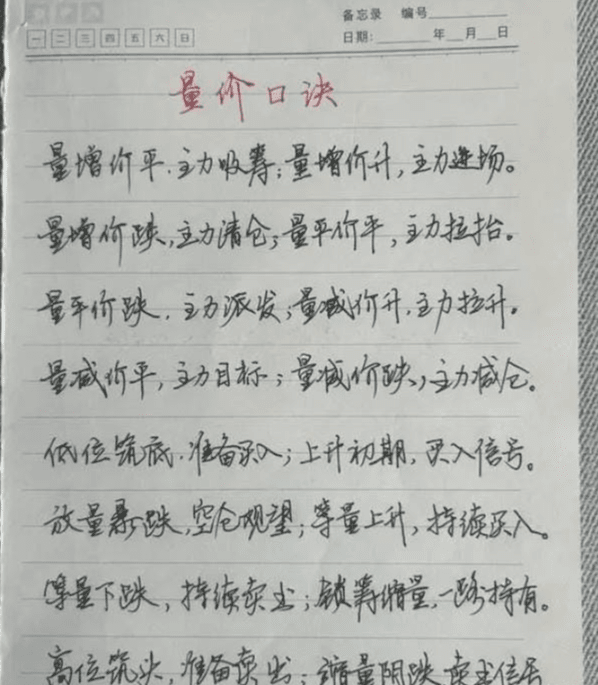 备忘录 编号
一 二 三 四 五 六 日
日期: 年 月 日
量价口诀
量增价平,主力收筹;量增价升,主力进场。
量增价跌,主力清仓;量平价平,主力拉抬。
量平价跌,主力派发;量减价升,主力拉升。
量减价平,主力目标;量减价跌,主力减仓。
低位筑底,准备买入;上升初期,买入信号。
放量暴跌,空仓观望;等量上升,持续买入。
等量下跌,持续卖出;锁筹缩量,一路持有。
高位筑头,准备卖出;缩量阴跌,卖出信号